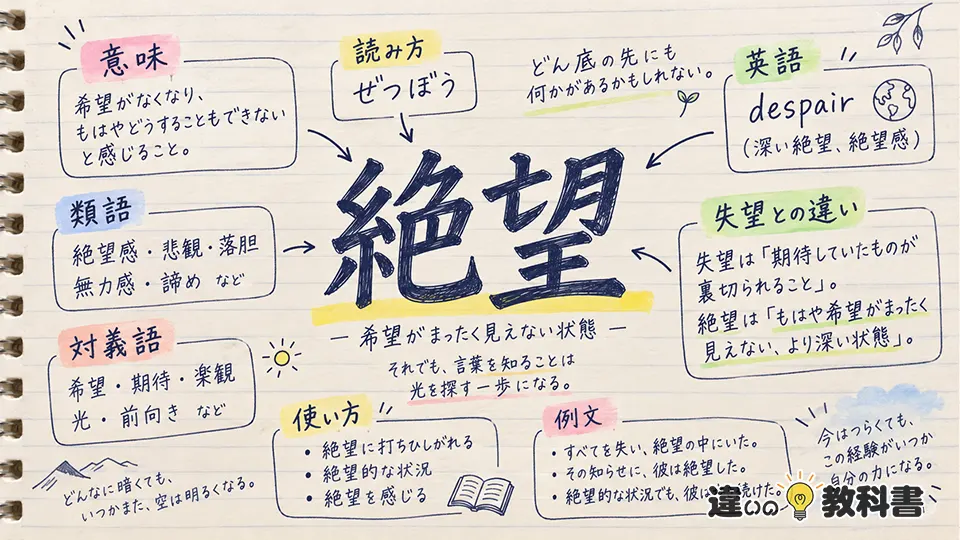 意味
希望がなくなり、
もはやどうすることもできない
と感じること。
読み方
ぜつぼう
どん底の先にも
何かがあるかもしれない。
英語
despair
(深い絶望、絶望感)
類語
絶望感・悲観・落胆
無力感・諦め など
絶望
― 希望がまったく見えない状態 ―
それでも、言葉を知ることは
光を探す一歩になる。
失望との違い
失望は「期待していたものが
裏切られること」。
絶望は「もはや希望がまったく
見えない、より深い状態」。
対義語
希望・期待・楽観
光・前向き など
使い方
• 絶望に打ちひしがれる
• 絶望的な状況
• 絶望を感じる
例文
• すべてを失い、絶望の中にいた。
• その知らせに、彼は絶望した。
• 絶望的な状況でも、彼は 続けた。
今はつらくても、
この経験がいつか
自分の力になる。
どんなに暗くても、
いつかまた、空は明るくなる。
違いの教科書